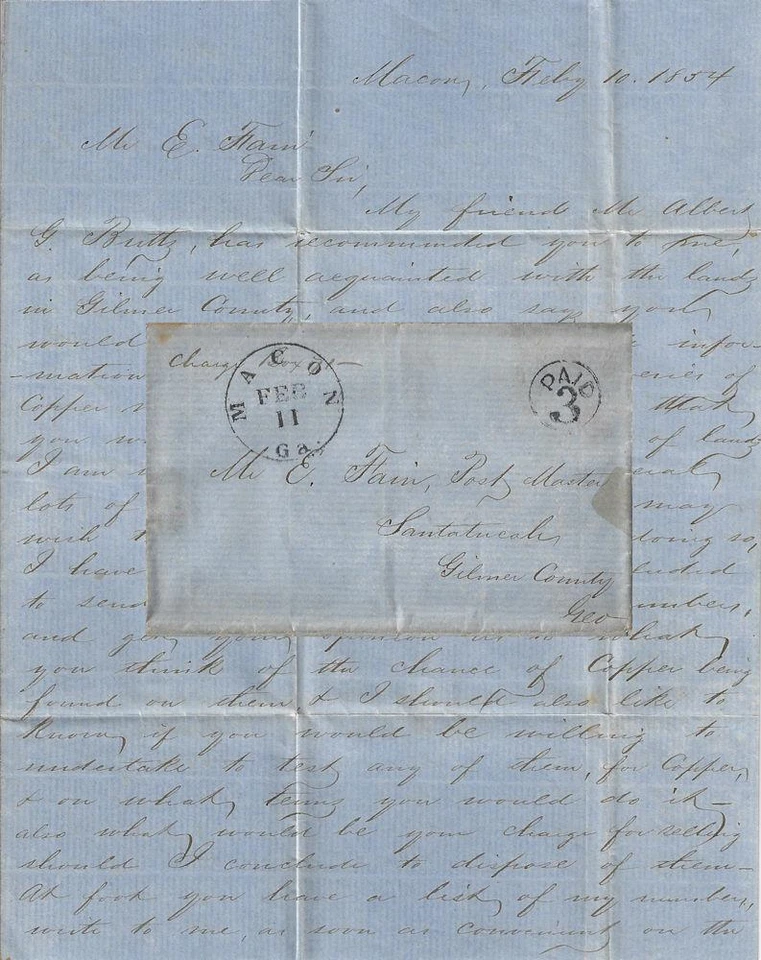 Macon, Feby 10. 1854
Mr E. Fain
Dear Sir,
My friend Mr Albert
G. Butts, has recommended you to me,
as being well acquainted with the lands
in Gilmer County, and also says you
would infor-
-mation eries of
Copper that
you of lands
I am
lots of may
wish doing so,
I have luded
to send umbers,
and get your opinion as to what
you think of the chance of Copper being
found on them & I should also like to
know, if you would be willing to
undertake to test any of them, for Copper,
& on what terms you would do it—
also what would be your charge for selling
should I conclude to dispose of them—
At foot you have a list of my numbers,
write to me, as soon as convenient on the
Charge Box
MACON
FEB
11
Ga.
PAID
3
Mr E. Fain, Post Master
Santalucah
Gilmer County
Geo